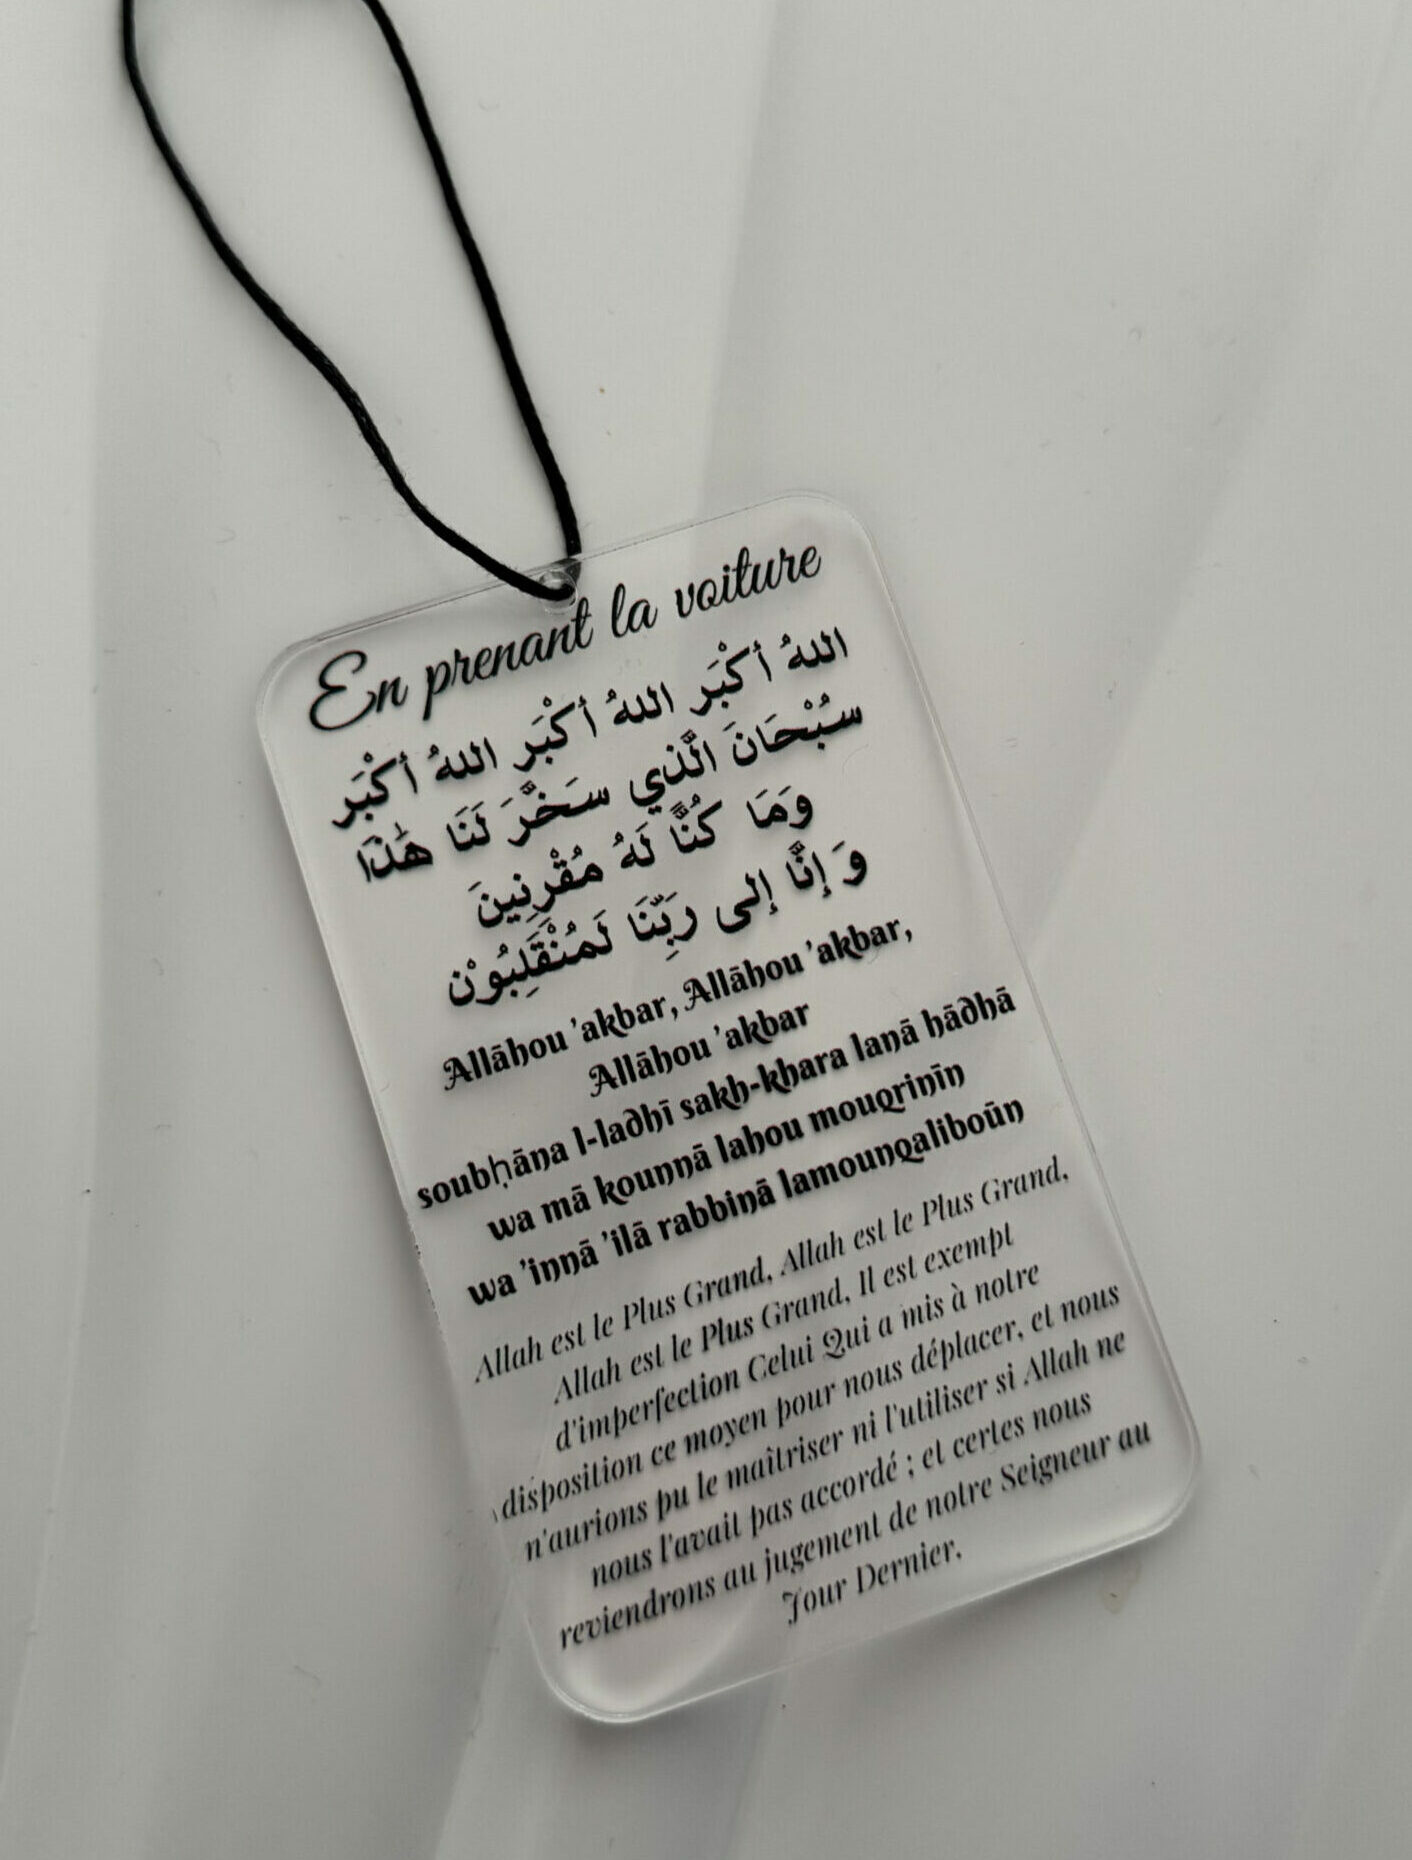 En prenant la voiture
اللهُ أكْبَر اللهُ أكْبَر اللهُ أكْبَر
سُبْحَانَ الَّذِي سَخَّرَ لَنَا هَٰذَا
وَمَا كُنَّا لَهُ مُقْرِنِينَ
وَ إِنَّا إِلى رَبِّنَا لَمُنْقَلِبُوْن
Allāhou 'akbar, Allāhou 'akbar,
Allāhou 'akbar
soubḥāna l-ladhī sakh-khara lanā hādhā
wa mā kounnā lahou mouqrinīn
wa 'innā 'ilā rabbinā lamounqaliboūn
Allah est le Plus Grand, Allah est le Plus Grand,
Allah est le Plus Grand, Il est exempt
d'imperfection Celui Qui a mis à notre
disposition ce moyen pour nous déplacer, et nous
n'aurions pu le maîtriser ni l'utiliser si Allah ne
nous l'avait pas accordé ; et certes nous
reviendrons au jugement de notre Seigneur au
Jour Dernier.